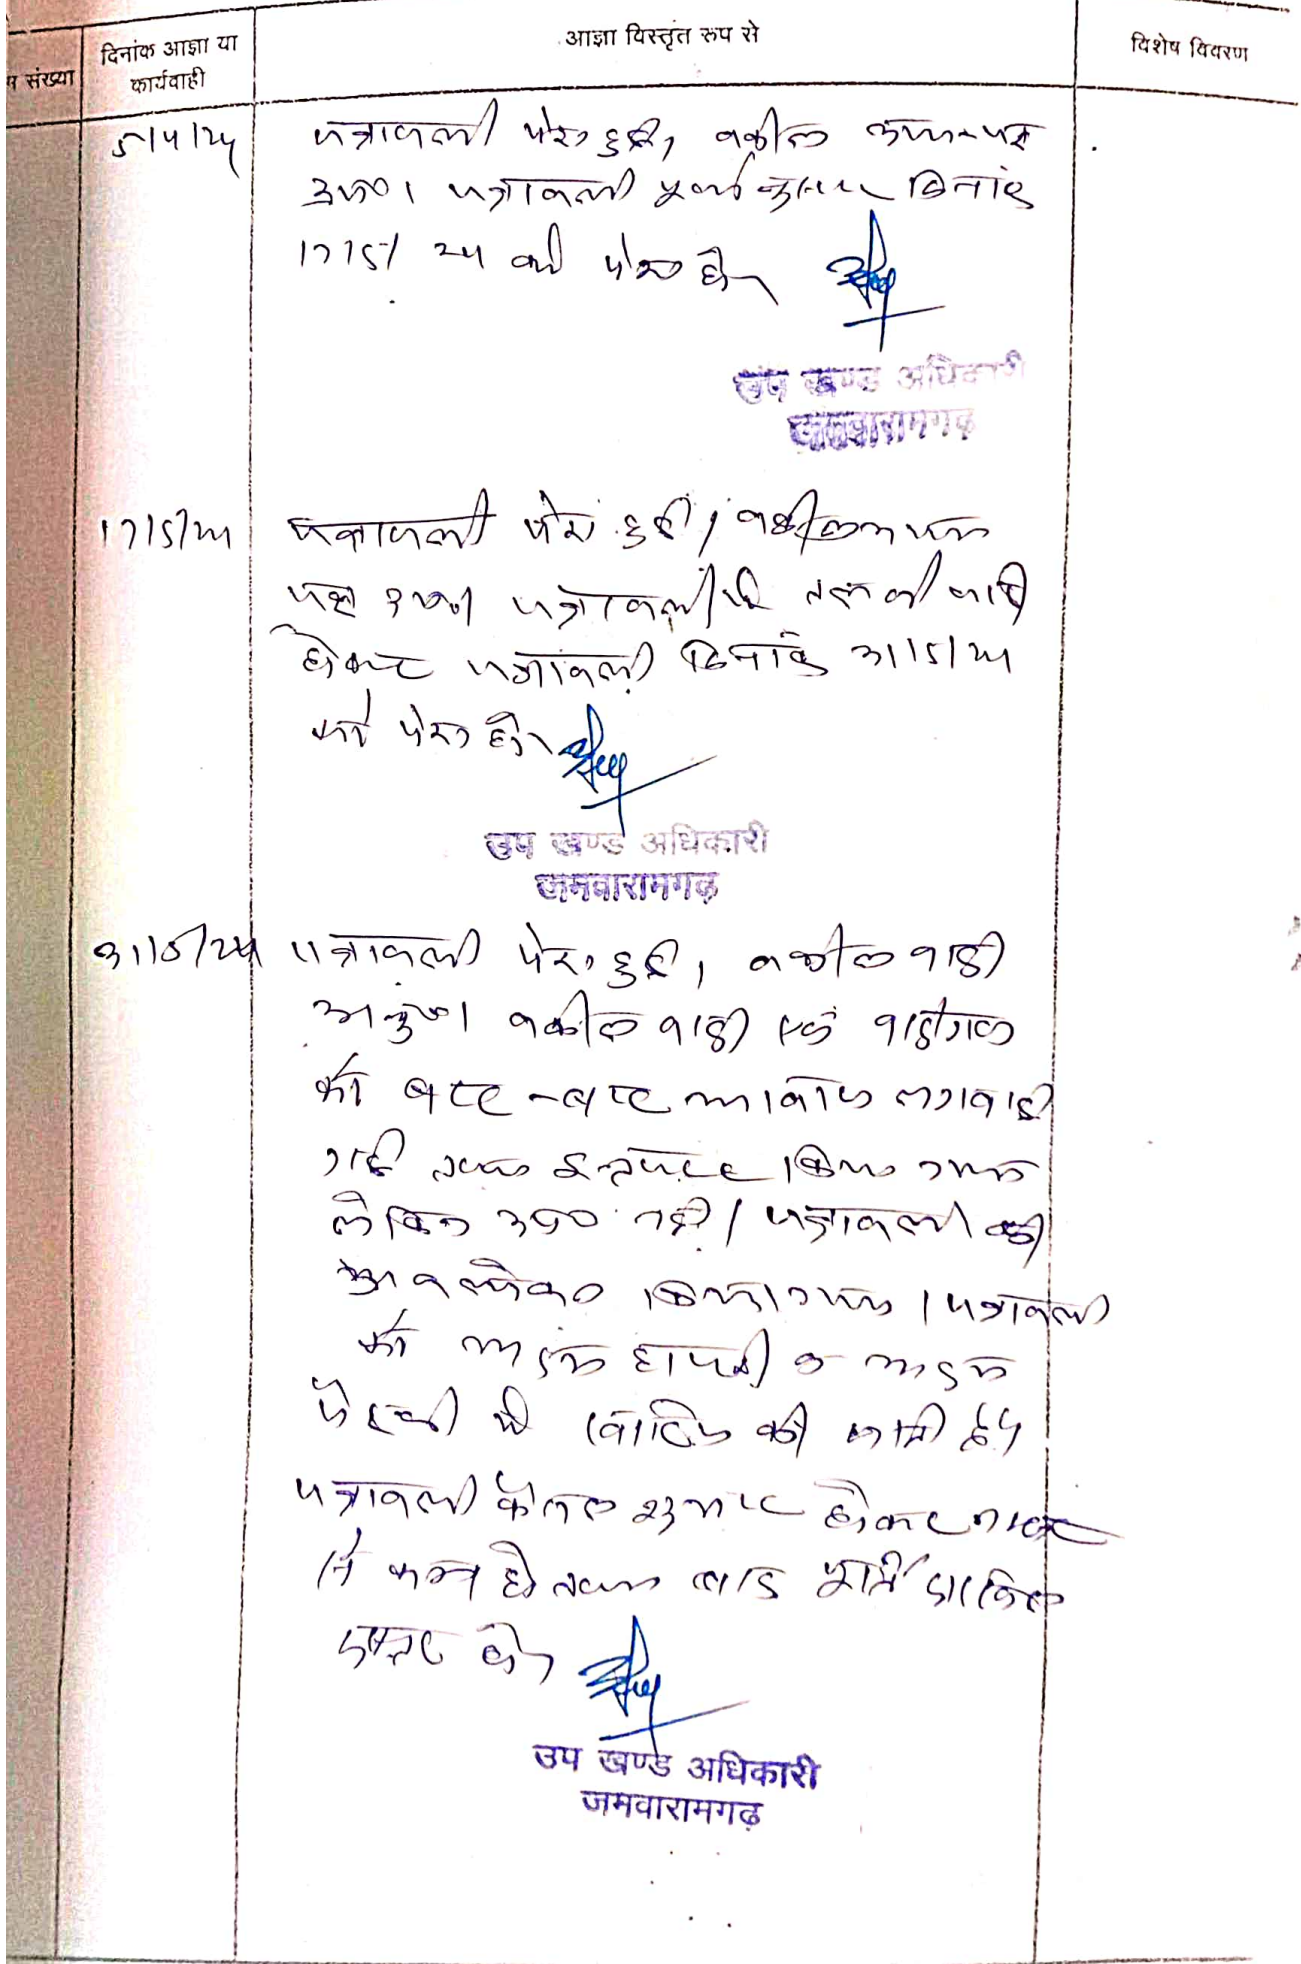 म संख्या
दिनांक आज्ञा या
कार्यवाही
आज्ञा विस्तृत रूप से
विशेष विवरण
5/4/24
पत्रावली पेश हुई, वकील उभय-पक्ष
उप०। पत्रावली पूर्वानुसार दिनांक
17/5/24 को पेश हो
उप खण्ड अधिकारी
जमवारामगढ़
17/5/24
पत्रावली पेश हुई। वकील उभय
पक्ष उप०। पत्रावली
होकर पत्रावली दिनांक 31/5/24
को पेश हो
उप खण्ड अधिकारी
जमवारामगढ़
31/5/24
पत्रावली पेश हुई, वकील वादी
अनुप०। वकील वादी एवं वादीगण
को बार-बार आवाज लगवाई
गई तथा इन्तजार किया गया
लेकिन उप० नहीं। पत्रावली का
अवलोकन किया गया। पत्रावली
को अदम हाजरी व अदम
पैरवी में खारिज की जाती है।
पत्रावली फैसल शुमार होकर नम्बर
से कम हो तथा बाद पूर्ति दाखिल
दफ्तर हो
उप खण्ड अधिकारी
जमवारामगढ़